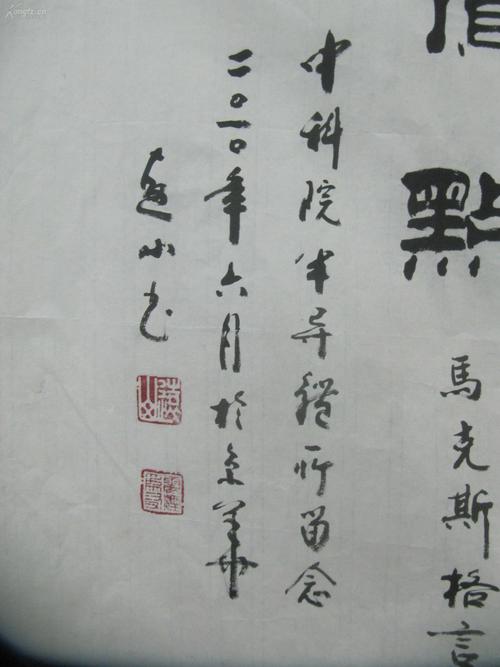 點
馬克斯格言
中科院半导體所留念
二〇一〇年六月於京華